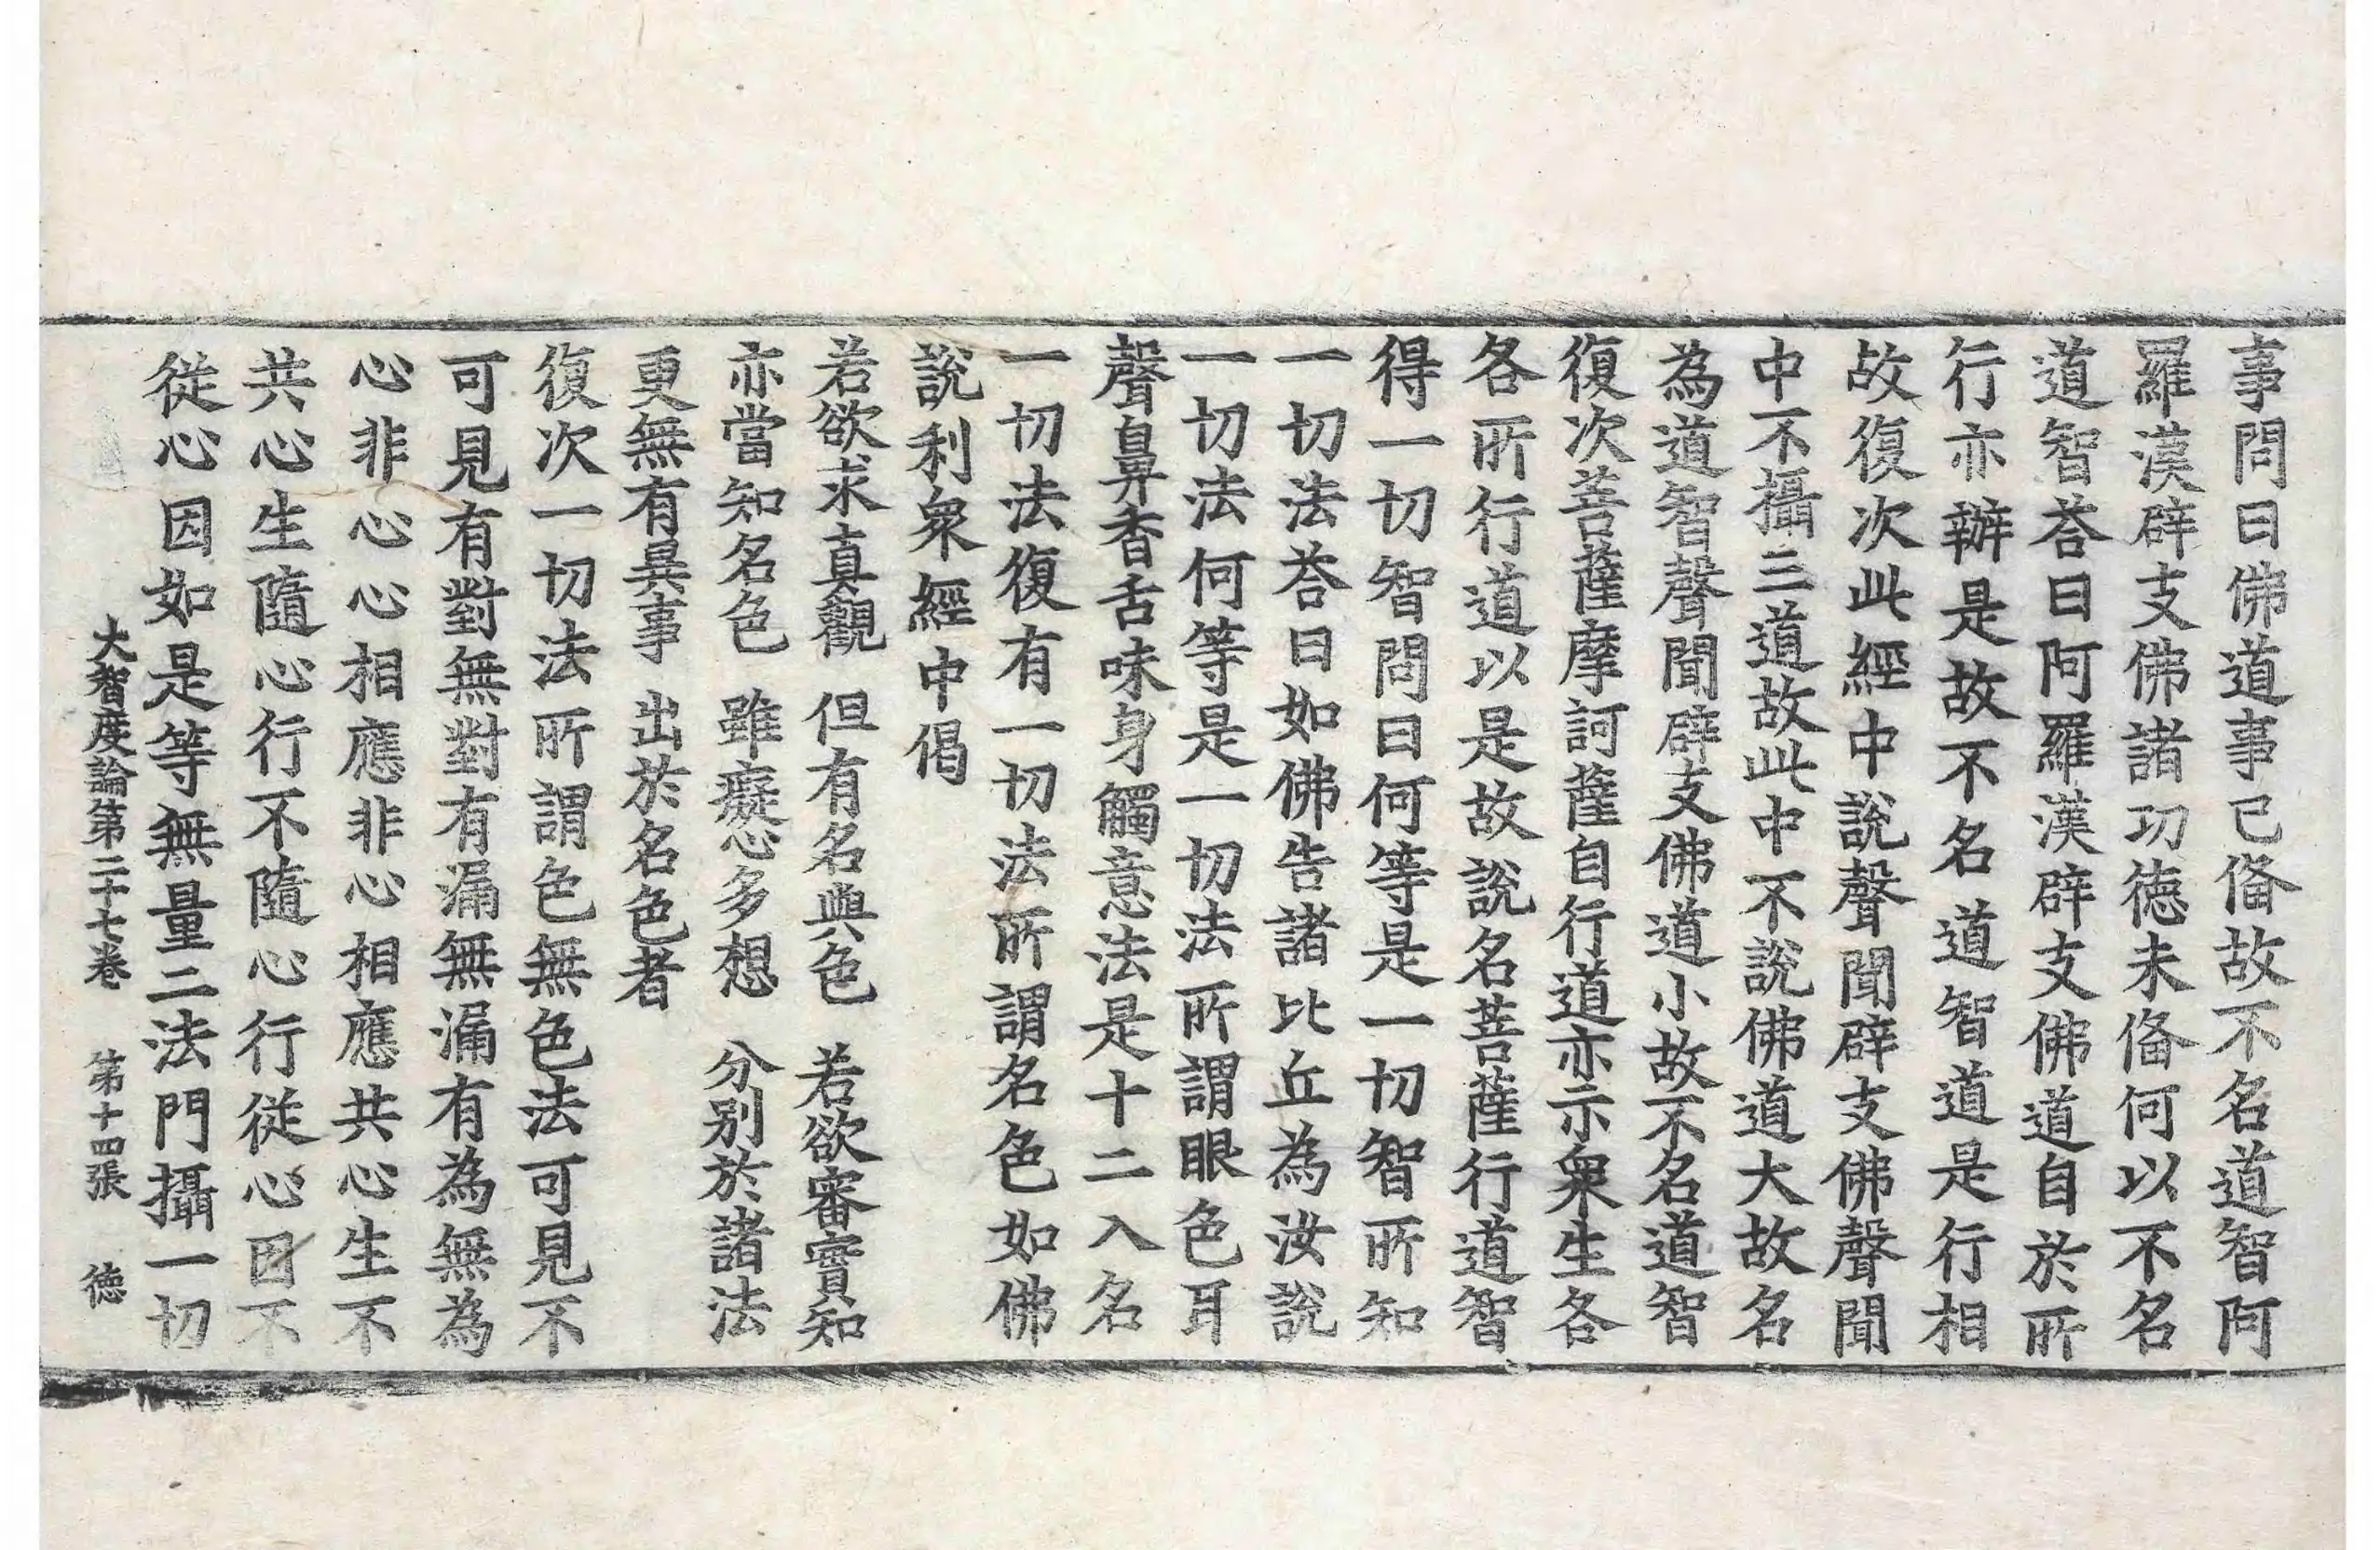 事問曰佛道事已俻故不名道智阿
羅漢辟支佛諸功德未俻何以不名
道智荅曰阿羅漢辟支佛道自於所
行亦辦是故不名道智道是行相
故復次此經中說聲聞辟支佛聲聞
中不攝三道故此中不說佛道大故名
為道智聲聞辟支佛道小故不名道智
復次菩薩摩訶薩自行道亦示衆生各
各所行道以是故說名菩薩行道智
得一切智問曰何等是一切智所知
一切法荅曰如佛告諸比丘為汝說
一切法何等是一切法所謂眼色耳
聲鼻香舌味身觸意法是十二入名
一切法復有一切法所謂名色如佛
說利衆經中偈
若欲求真觀　但有名與色　若欲審實知
亦當知名色　雖癡心多想　分別於諸法
更無有異事　出於名色者
復次一切法所謂色無色法可見不
可見有對無對有漏無漏有為無為
心非心心相應非心相應共心生不
共心生隨心行不隨心行從心因不
從心因如是等無量二法門攝一切
大智度論第二十七卷　第十四張　德